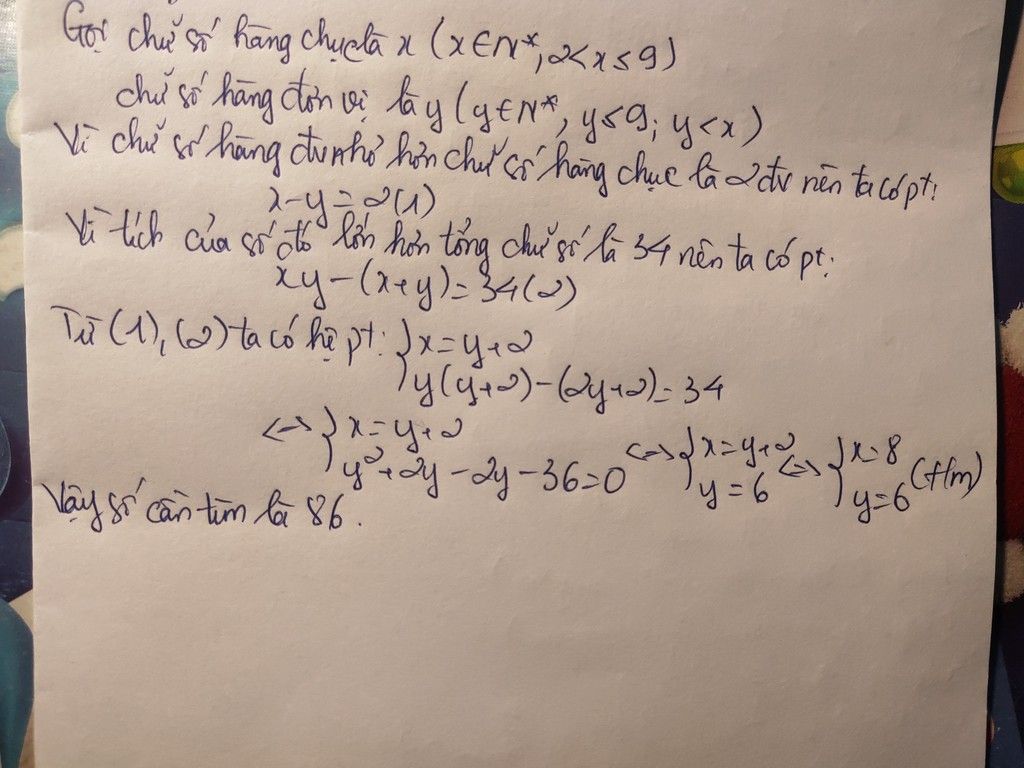 Gọi chữ số hàng chục là x (x∈N*, 2<x≤9)
chữ số hàng đơn vị là y (y∈N*, y≤9; y<x)
Vì chữ số hàng đv nhỏ hơn chữ số hàng chục là 2 đv nên ta có pt:
x-y=2(1)
Vì tích của số đó lớn hơn tổng chữ số là 34 nên ta có pt:
xy-(x+y)=34(2)
Từ (1), (2) ta có hệ pt: { x=y+2
y(y+2)-(2y+2)=34
<=> { x=y+2
y²+2y-2y-36=0 <=> { x=y+2 y=6 <=> { x=8 y=6 (t/m)
Vậy số cần tìm là 86.